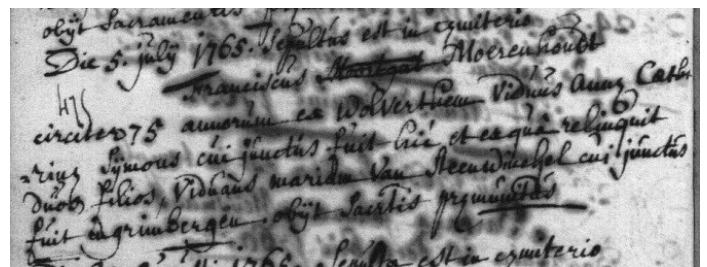 obijt Sacramentis
Die 5. julij 1765. Sepultus est in cæmiterio
Franciscus Moortgat Moerenhoudt
475
circiter 75 annorum ex Wolverthem viduus Annæ Cathe
rinæ Sijmons cui junctus fuit hic et ex quâ relinquit
duos filios, viduans mariam Van Steenwinckel cui junctus
fuit in grimbergen. obijt Sacrtis præmunitus
1765. Sepulta est in cæmiterio